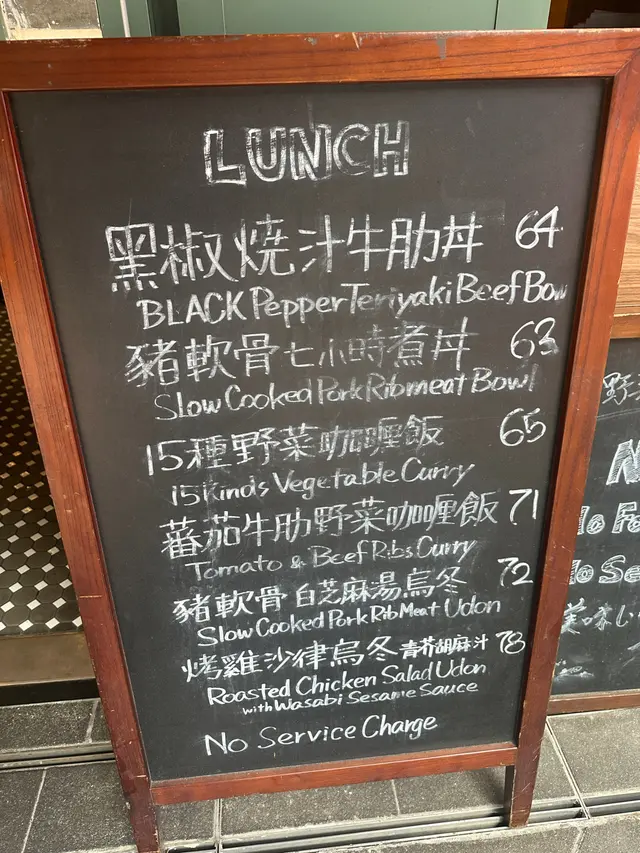 LUNCH
黑椒燒汁牛肋丼 64
BLACK Pepper Teriyaki Beef Bow
豬軟骨七小時煮丼 63
Slow Cooked Pork Ribmeat Bowl
15種野菜咖喱飯 65
15 Kinds Vegetable Curry
蕃茄牛肋野菜咖喱飯 71
Tomato & Beef Ribs Curry
豬軟骨白芝麻湯烏冬 72
Slow Cooked Pork Rib Meat Udon
烤雞沙律烏冬 青芥胡麻汁 78
Roasted Chicken Salad Udon
with Wasabi Sesame Sauce
No Service Charge
野
美味